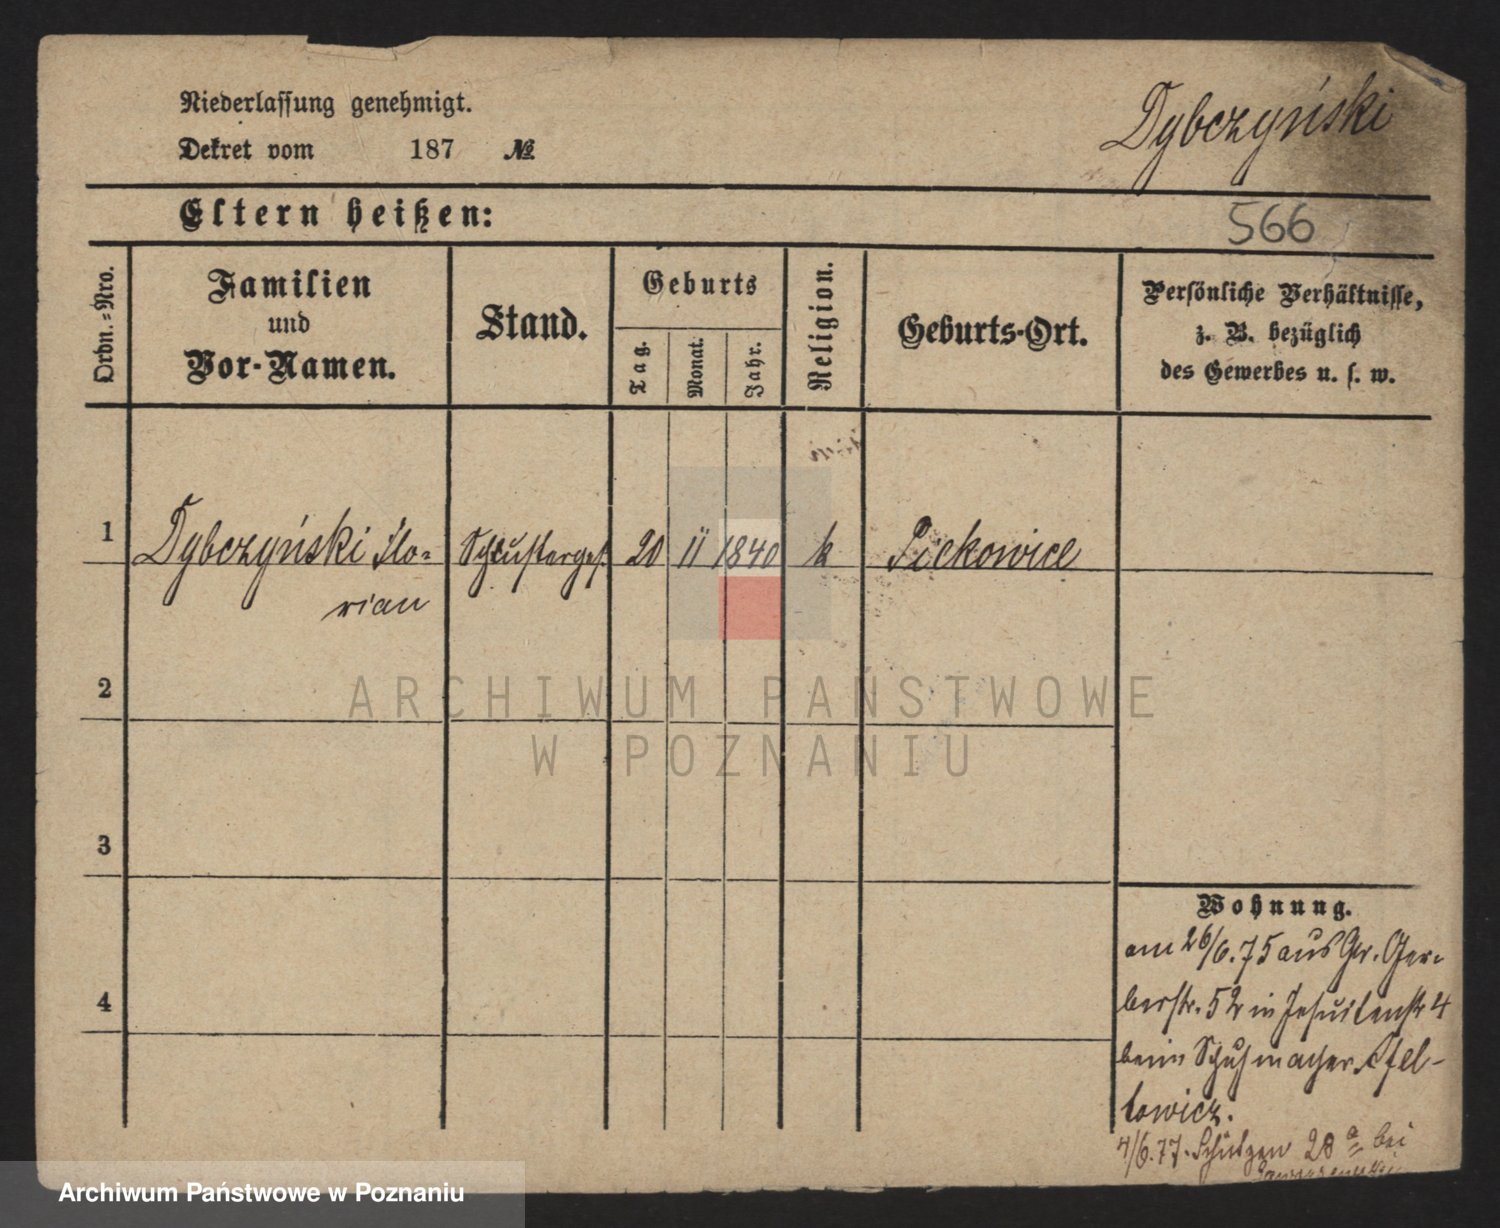 Niederlassung genehmigt.
Dekret vom 187 №
Dybczyński
Eltern heißen:
566
Ordn.-Nro.
Familien
und
Vor-Namen.
Stand.
Geburts
Tag.
Monat.
Jahr.
Religion.
Geburts-Ort.
Persönliche Verhältnisse,
z. B. bezüglich
des Gewerbes u. s. w.
1
Dybczyński Flo-
rian
Schusterges.
20 11 1840 k
Piekowice
2
ARCHIWUM PAŃSTWOWE
W POZNANIU
3
4
Wohnung.
am 26/6.75 aus Gr. Ger-
berstr. 52 in Jesuitenstr 4
beim Schuhmacher
towicz.
4/6.77. Schützen 28 a bei
Archiwum Państwowe w Poznaniu